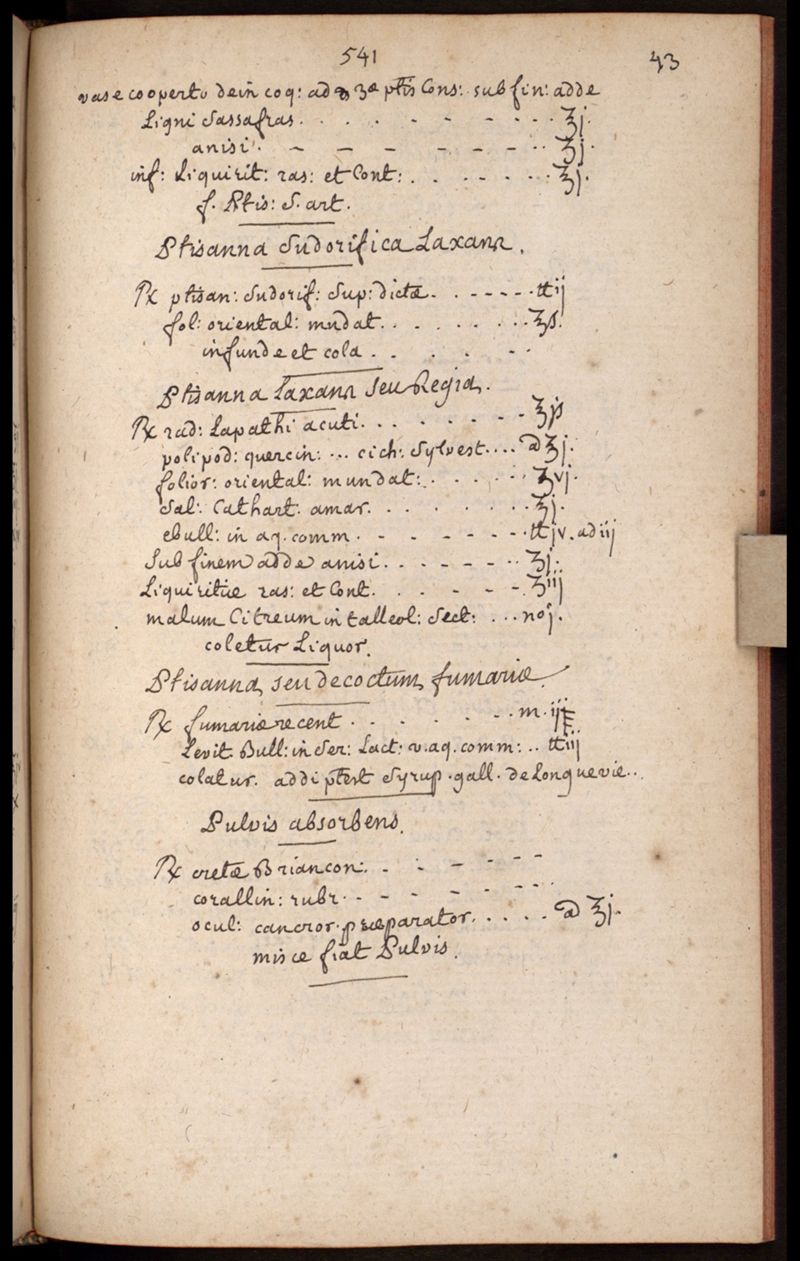 541
43
vase cooperto dein coq: ad 3æ ptis Cons: sub fin: adde
Ligni Sassafras . . . . - - - - . . ʒj.
anisi . - - - - - - . . ʒj.
inf: Liquirit: ras: et Cont: . . - . . . . ʒj.
f. Ptis: S. art.
Ptisanna Sudorifica Laxans.
℞ ptisan: Sudorif: Sup: dictæ . . - - - - - . ℔ij
fol: oriental: mndat. . . . . . . . . ʒß.
infunde et cola . . . . . - -
Ptisanna Laxans seu Regia.
℞ rad: Lapathi acuti . . . . . - . - ʒjß
polipod: quercin: ... cich: Sylvest. . . . a ʒj.
folior: oriental: mundat: . . . . . . ʒvj.
Sal: Cathart. amar. . . . . . . . ʒj.
ebull: in aq. comm . - - - - - - . . ℔jv. ad iij
Sub finem adde anisi . . - . . . - . . ʒj.
Liquiritiæ ras: et Cont. . . - - - . ʒiij
malum Citreum in talleol: Sect: . . . noj.
coletur Liquor.
Ptisanna, seu decoctum, fumariæ.
℞ fumariæ recent . . . . . - . . m. ijß
Levit. Bull: in Ser: Lact: v. aq. comm: . . ℔iij
colatur. addi ptest Syrup. gall. de Longuevie . . .
Pulvis absorbens.
℞ cretæ Briancon: . - - - - -
corallin: rubr . - - - - - -
ocul: cancror. præparator. . . . . a ʒj.
misce fiat Pulvis.